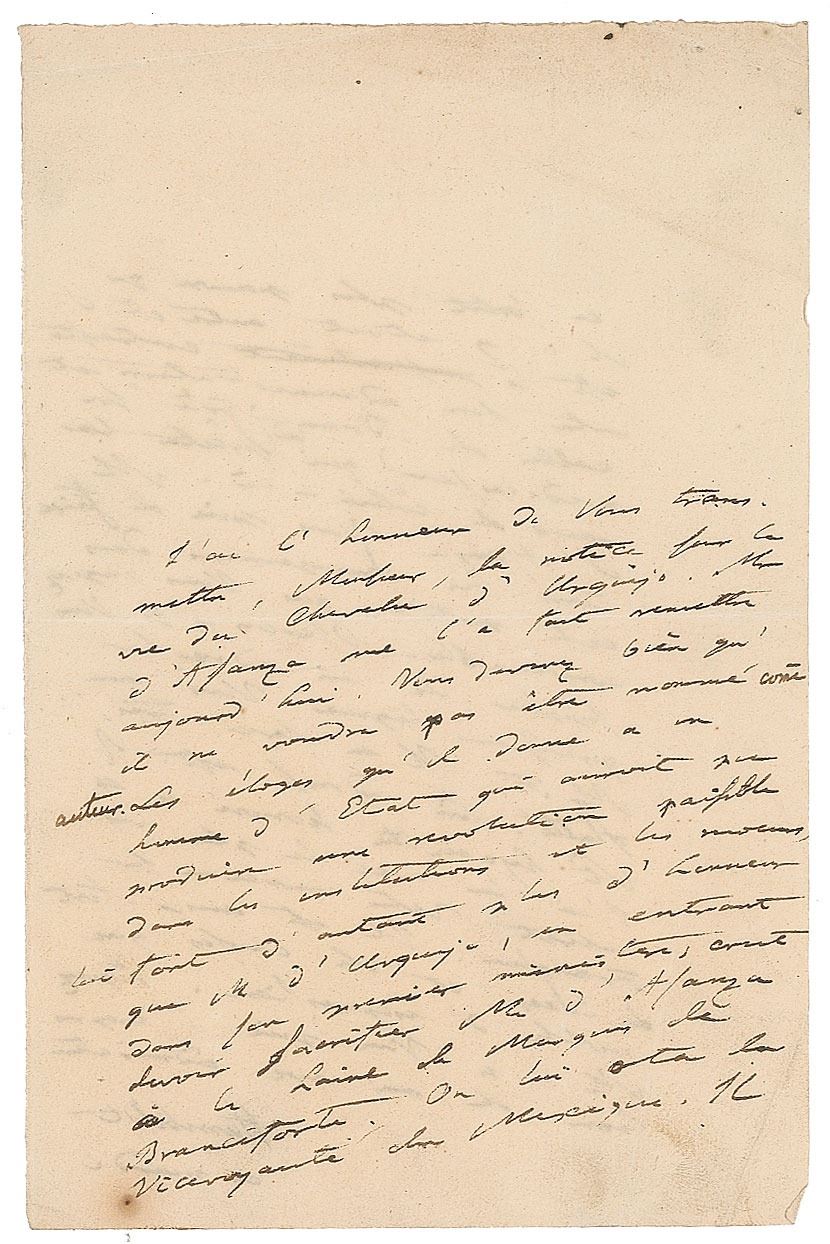 J'ai l'honneur de Vous trans-
mettre, Monsieur, la notice sur la
vie du Chevalier d'Urquijo. Mr
d'Asanza me l'a fait remettre
aujourd'hui. Vous devinez bien qu'
il ne voudra pas être nommé come
auteur. Les éloges qu'il donne à un
homme d'Etat qui auroit pu
produire une revolution paisible
dans les institutions et les moeurs,
lui font d'autant plus d'honneur
que M d'Urquijo, en entrant
dans son premier ministère, crut
devoir sacrifier Mr d'Asanza
à la haine du Marquis de
Branciforte. On lui ota la
Viceroyauté du Mexique. Il